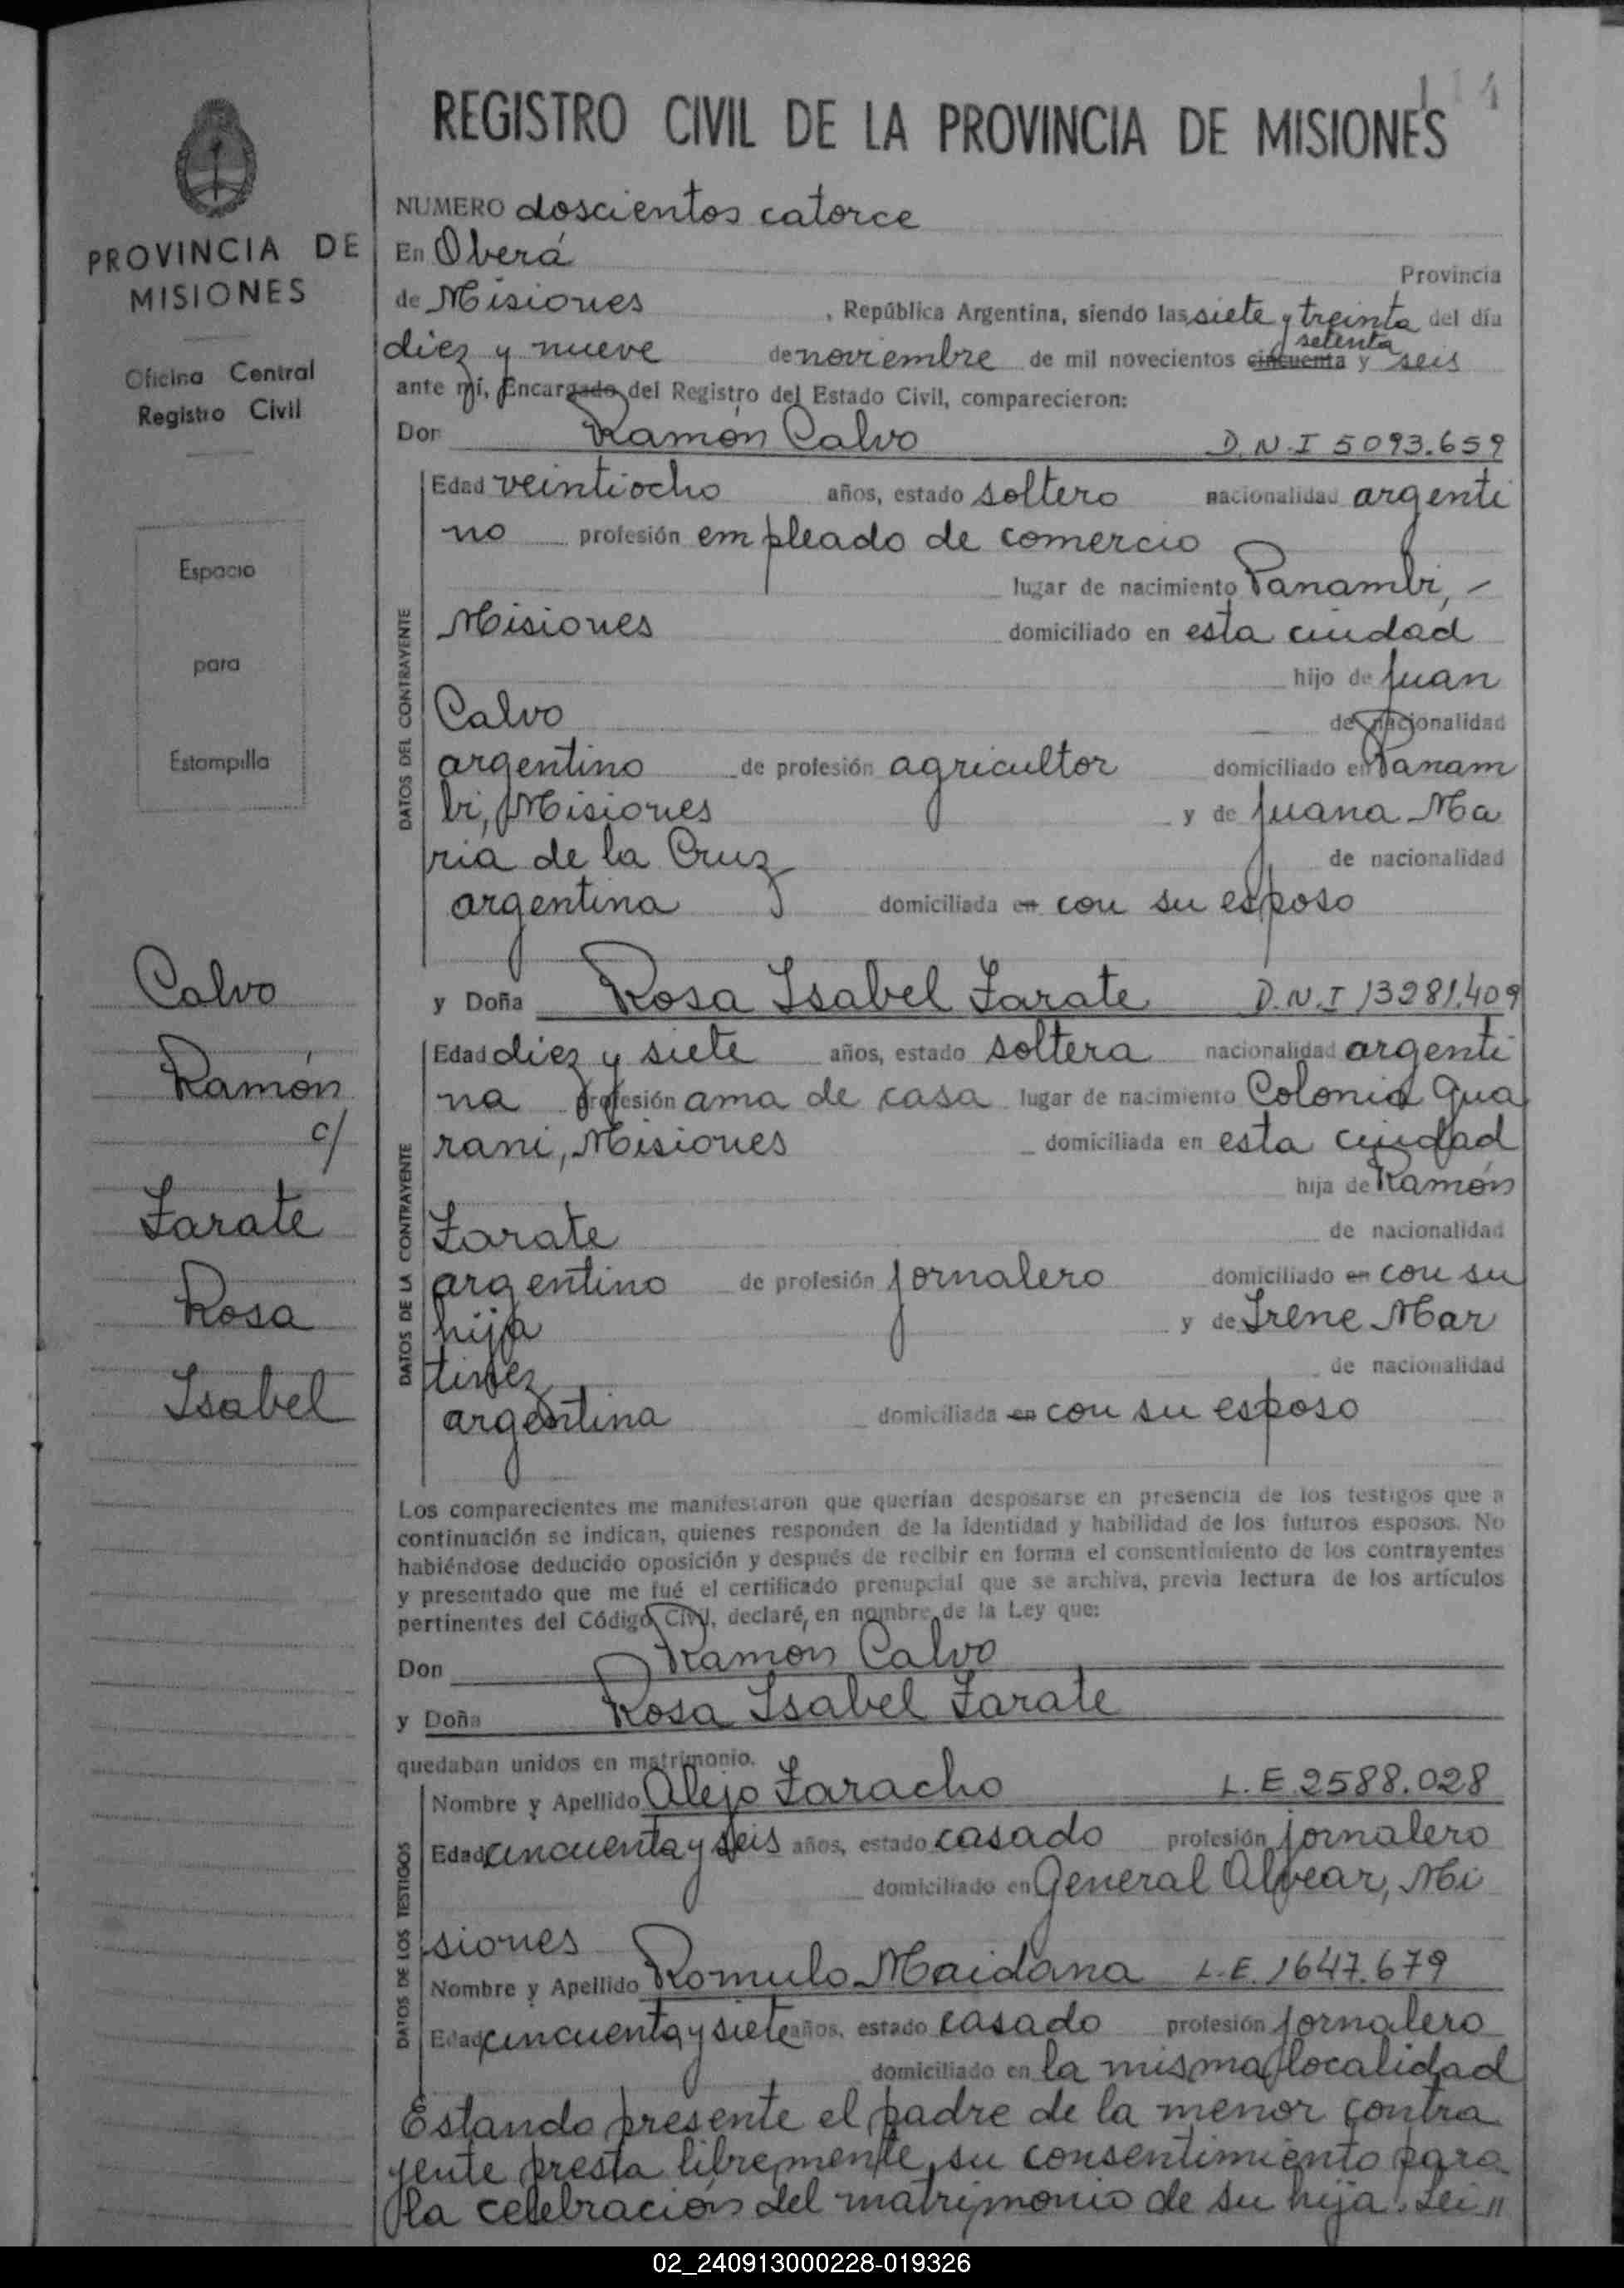 114
REGISTRO CIVIL DE LA PROVINCIA DE MISIONES
PROVINCIA DE
MISIONES
Oficina Central
Registro Civil
Espacio
para
Estampilla
Calvo
Ramón
c/
Zarate
Rosa
Isabel
NUMERO doscientos catorce
En Oberá Provincia
de Misiones , República Argentina, siendo las siete y treinta del día
setenta
diez y nueve de noviembre de mil novecientos cincuenta y seis
ante mí, Encargado del Registro del Estado Civil, comparecieron:
Don Ramón Calvo D.N.I 5093.659
DATOS DEL CONTRAYENTE
Edad veintiocho años, estado soltero nacionalidad argenti
no profesión empleado de comercio
lugar de nacimiento Panambi, -
Misiones domiciliado en esta ciudad
hijo de Juan
Calvo de nacionalidad
argentino de profesión agricultor domiciliado en Panam
bi, Misiones y de Juana Ma
ria de la Cruz de nacionalidad
argentina domiciliada en con su esposo
y Doña Rosa Isabel Zarate D.N.I 13281.409
DATOS DE LA CONTRAYENTE
Edad diez y siete años, estado soltera nacionalidad argenti
na profesión ama de casa lugar de nacimiento Colonia Gua
rani, Misiones domiciliada en esta ciudad
hija de Ramón
Zarate de nacionalidad
argentino de profesión jornalero domiciliado en con su
hija y de Irene Mar
tinez de nacionalidad
argentina domiciliada en con su esposo
Los comparecientes me manifestaron que querían desposarse en presencia de los testigos que a
continuación se indican, quienes responden de la identidad y habilidad de los futuros esposos. No
habiéndose deducido oposición y después de recibir en forma el consentimiento de los contrayentes
y presentado que me fué el certificado prenupcial que se archiva, previa lectura de los artículos
pertinentes del Código Civil, declaré, en nombre de la Ley que:
Don Ramon Calvo
y Doña Rosa Isabel Zarate
quedaban unidos en matrimonio.
DATOS DE LOS TESTIGOS
Nombre y Apellido Alejo Zaracho L.E. 2588.028
Edad cincuenta y seis años, estado casado profesión jornalero
domiciliado en General Alvear, Mi
siones
Nombre y Apellido Romulo Maidana L.E. 1647.679
Edad cincuenta y siete años, estado casado profesión jornalero
domiciliado en la misma localidad
Estando presente el padre de la menor contra
yente presta libremente su consentimiento para
la celebración del matrimonio de su hija. Lei //
02_240913000228-019326